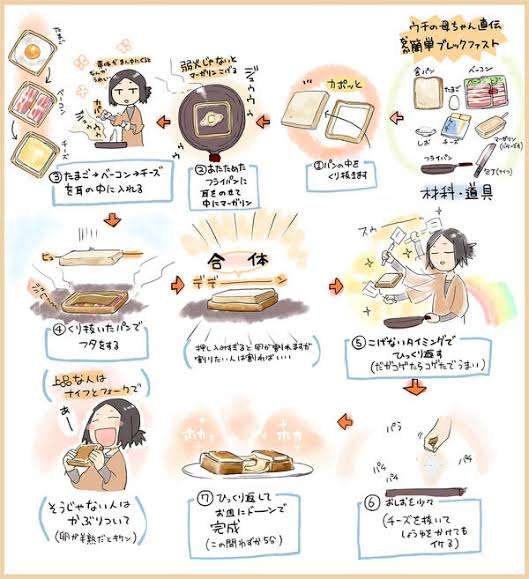 ウチの母ちゃん直伝
簡単ブレックファスト
食パン
たまご
ベーコン
しお
チーズ
マーガリン
フライパン
包丁(ナイフ)
材料・道具
カポッと
①パンの中を
くり抜きます
弱火じゃないと
マーガリンこげる
ジュウゥゥ
②あたためた
フライパンに
耳をのせて
中にマーガリン
たまご
ベーコン
チーズ
③たまご→ベーコン→チーズ
を耳の中に入れる
④くり抜いたパンで
フタをする
合体
デデーーン
押し込みすぎると卵が割れますが
割りたい人は割ればいい
スッ
⑤こげないタイミングで
ひっくり返す
(だがコゲたらコゲたでうまい)
パラ
パラ
パラ
⑥おしお少々
(チーズを抜いて
しょうゆをかけても
イケる)
ホカッ
ホカッ
⑦ひっくり返して
お皿にドーンで
完成
(この間わずか5分)
上品な人は
ナイフとフォークで
あー
そうじゃない人は
かぶりついて
(卵が半熟だとキケン)